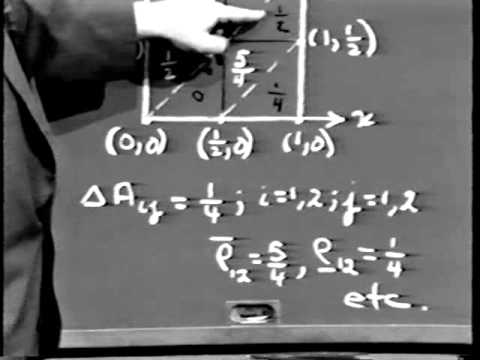 1/2
(1, 1/2)
1/2
5/4
0
1/4
x
(0,0) (1/2,0) (1,0)
ΔA_ij = 1/4 ; i=1,2; j=1,2
ρ̅_12 = 5/4, ρ̲_12 = 1/4
etc.